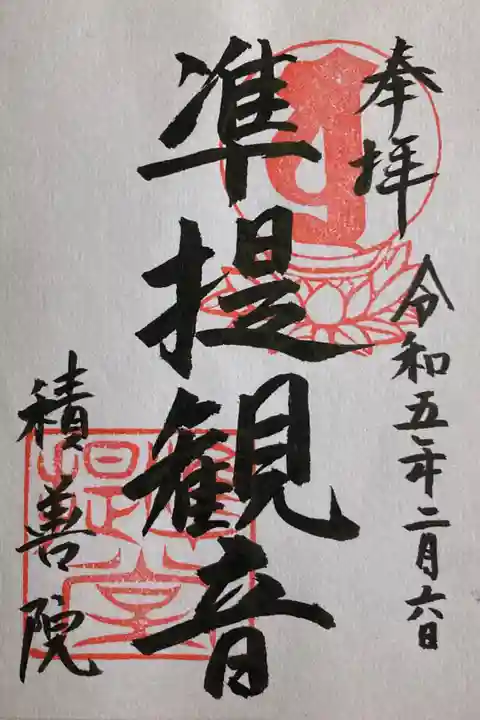 奉拝
令和五年二月六日
准提観音
積善院
准提堂